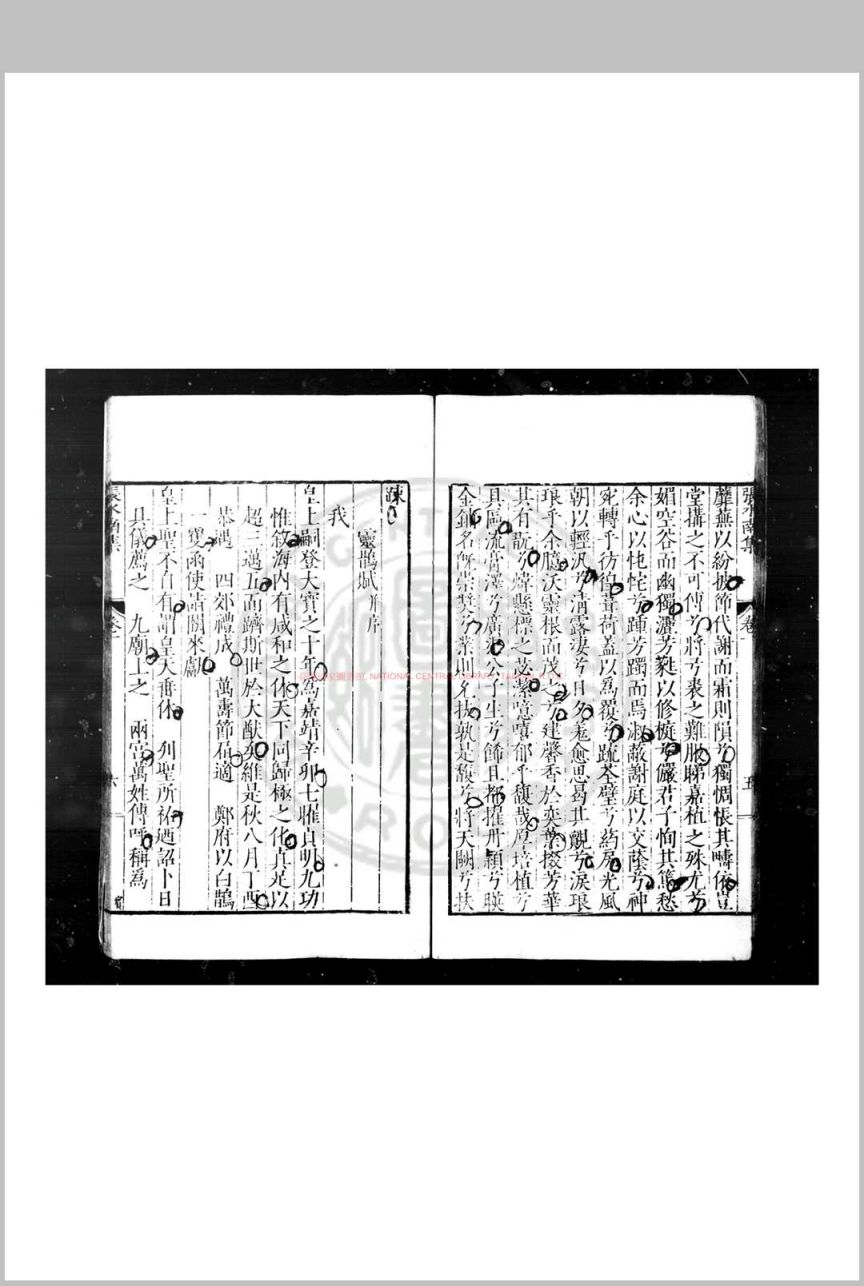 張水南集 卷 五
蘼蕪以紛披節代謝而霜則隕兮獨惆悵其疇依豈
堂搆之不可傅兮將兮裘之難服睇嘉植之殊尤兮
媚空谷而幽獨灑芳蕤以修梃兮儼君子恂其篤愁
余心以忳忳兮踵芳躅而焉淑敞謝庭以交蔭兮神
宛轉乎彷徨葺荷蓋以為覆兮疏荃壁兮葯房光風
朝以輕汎兮清露淒兮日夕羌愈思曷其覿兮淚琅
琅乎余臆沃靈根而茂之兮建馨香於奕葉掇芳華
其有託兮煒懸標之苾潔噫嘻郁乎馥哉厚培植兮
具區流膏澤兮廣衍公子生兮飾且都摧丹穎兮映
金鋪名毋崇奬兮業則名扶孰是馥兮將天闕兮扶
疎
靈鵲賦并序
我
皇上嗣登大寶之十年為嘉靖辛卯七曜貞明九功
惟敘海内有咸和之休天下同歸極之化真足以
超三邁五而躋斯世於大猷矣維是秋八月丁酉
恭遇 四郊禮成 萬壽節在適 鄭府以白鵲
一雙函使詣闕來獻
皇上聖不自有謂皇天垂休 列聖所祐迺詔卜日
具儀薦之 九廟上之 兩宮萬姓傳呼稱為
張水南集 卷 六